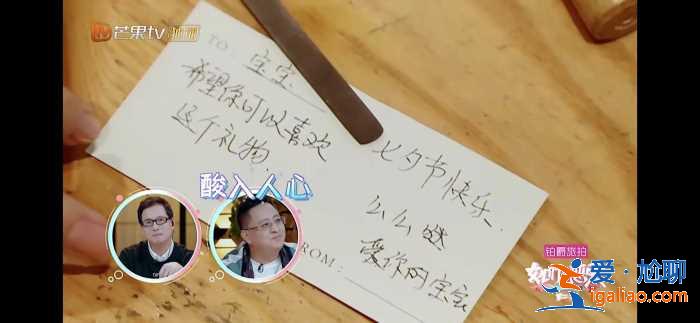 芒果tv
TO: 宝宝
希望你可以喜欢
这个礼物
七夕节快乐.
么么哒
爱你的宝宝
ROM:
酸入人心
铂爵旅拍
爱·尬聊
jigaliao.com